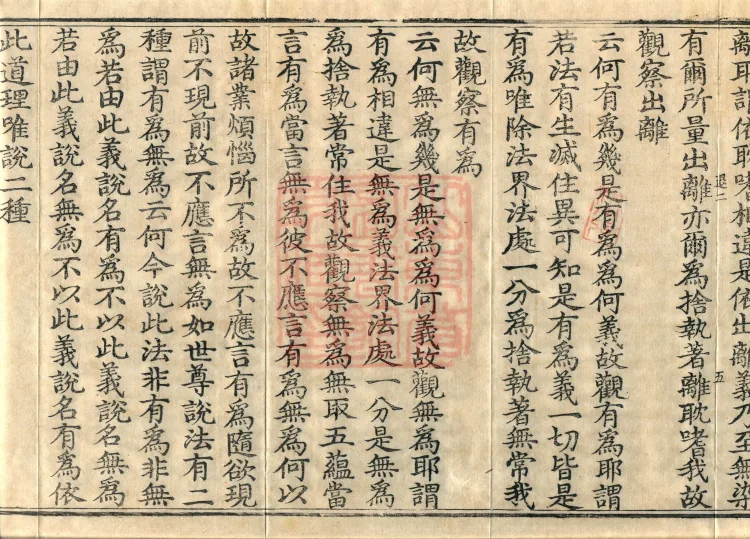 離耽許依耽嗜相違是依出離義乃至無染
有爾所量出離亦爾為捨執著離耽嗜我故
觀察出離
云何有為幾是有為為何義故觀有為耶謂
若法有生滅住異可知是有為義一切皆是
有為唯除法界法處一分為捨執著無常我
故觀察有為
云何無為幾是無為為何義故觀無為耶謂
有為相違是無為義法界法處一分是無為
為捨執著常住我故觀察無為無取五蘊當
言有為當言無為彼不應言有為無為何以
故諸業煩惱所不為故不應言有為隨欲現
前不現前故不應言無為如世尊說法有二
種謂有為無為云何今說此法非有為非無
為若由此義說名有為不以此義說名無為
若由此義說名無為不以此義說名有為依
此道理唯說二種
退二
五